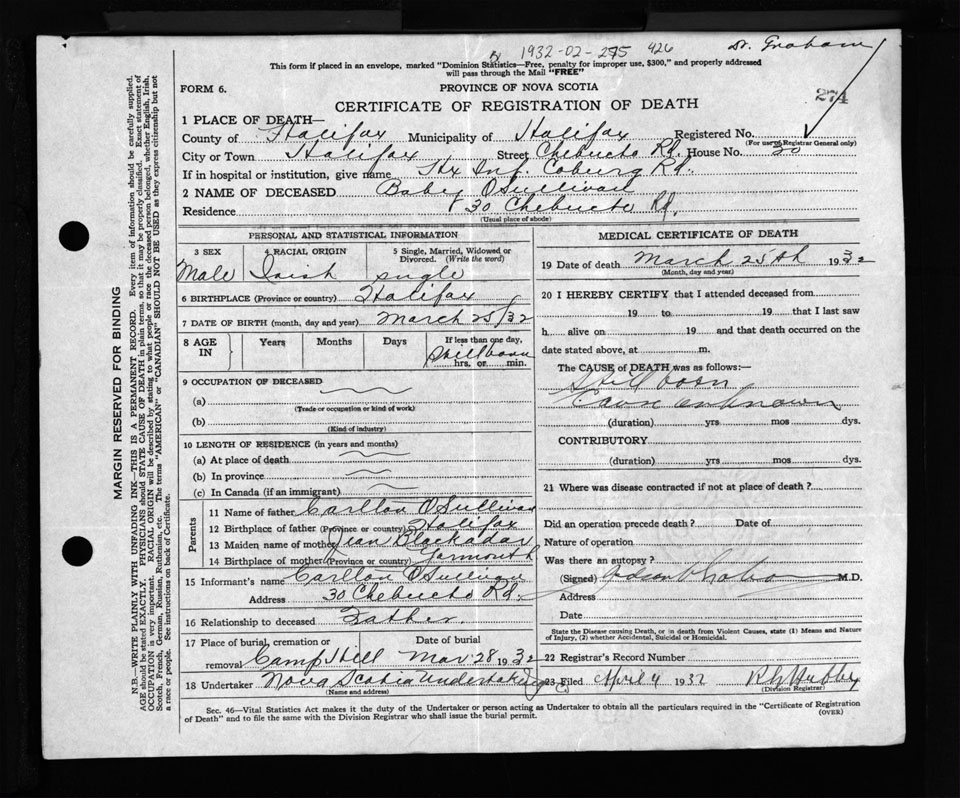 1932-02-275 426
Dr. Graham
This form if placed in an envelope, marked "Dominion Statistics—Free, penalty for improper use, $300," and properly addressed
will pass through the Mail "FREE"
FORM 6. PROVINCE OF NOVA SCOTIA 274
CERTIFICATE OF REGISTRATION OF DEATH
1 PLACE OF DEATH—
County of Halifax Municipality of Halifax Registered No.
(For use of Registrar General only)
City or Town Halifax Street Chebucto Rd. House No. 30
If in hospital or institution, give name Hx Inf. Coburg Rd.
2 NAME OF DECEASED Baby O'Sullivan
Residence 30 Chebucto Rd.
(Usual place of abode)
PERSONAL AND STATISTICAL INFORMATION
3 SEX 4 RACIAL ORIGIN 5 Single, Married, Widowed or Divorced. (Write the word)
Male Irish single
6 BIRTHPLACE (Province or country) Halifax
7 DATE OF BIRTH (month, day and year) March 25/32
8 AGE IN Years Months Days If less than one day,
Stillborn
hrs. or min.
9 OCCUPATION OF DECEASED
(a)
(Trade or occupation or kind of work)
(b)
(Kind of industry)
10 LENGTH OF RESIDENCE (in years and months)
(a) At place of death
(b) In province
(c) In Canada (if an immigrant)
Parents
11 Name of father Carlton O'Sullivan
12 Birthplace of father (Province or country) Halifax
13 Maiden name of mother Jean Blackadar
14 Birthplace of mother (Province or country) Yarmouth
15 Informant's name Carlton O'Sullivan
Address 30 Chebucto Rd.
16 Relationship to deceased Father.
17 Place of burial, cremation or removal Date of burial
Camp Hill Mar 28 1932
18 Undertaker Nova Scotia Undertaking
(Name and address)
MEDICAL CERTIFICATE OF DEATH
19 Date of death March 25th 1932
(Month, day and year)
20 I HEREBY CERTIFY that I attended deceased from
19 to 19 that I last saw
h alive on 19 and that death occurred on
date stated above, at m.
The CAUSE OF DEATH was as follows:—
Still born
Cause unknown
(duration) yrs mos dys.
CONTRIBUTORY
(duration) yrs mos dys.
21 Where was disease contracted if not at place of death?
Did an operation precede death? Date of
Nature of operation
Was there an autopsy?
(Signed) M.D.
Address
Date
State the Disease causing Death, or in death from Violent Causes, state (1) Means and Nature
of Injury, (2) whether Accidental, Suicidal or Homicidal.
22 Registrar's Record Number
23 Filed April 4 1932
(Division Registrar)
Sec. 46—Vital Statistics Act makes it the duty of the Undertaker or person acting as Undertaker to obtain all the particulars required in the "Certificate of Registration
of Death" and to file the same with the Division Registrar who shall issue the burial permit. (OVER)
MARGIN RESERVED FOR BINDING
N.B.—WRITE PLAINLY WITH UNFADING INK—THIS IS A PERMANENT RECORD. Every item of information should be carefully supplied.
AGE should be stated EXACTLY. PHYSICIANS should STATE CAUSE OF DEATH in plain terms, so that it may be properly classified. Exact statement of
OCCUPATION is very important. RACIAL ORIGIN will be described by stating to what people or race the deceased person belonged, whether English, Irish,
Scotch, French, German, Russian, Ruthenian, etc. The terms "AMERICAN" or "CANADIAN" SHOULD NOT BE USED as they express citizenship but not
a race or people. See instructions on back of Certificate.